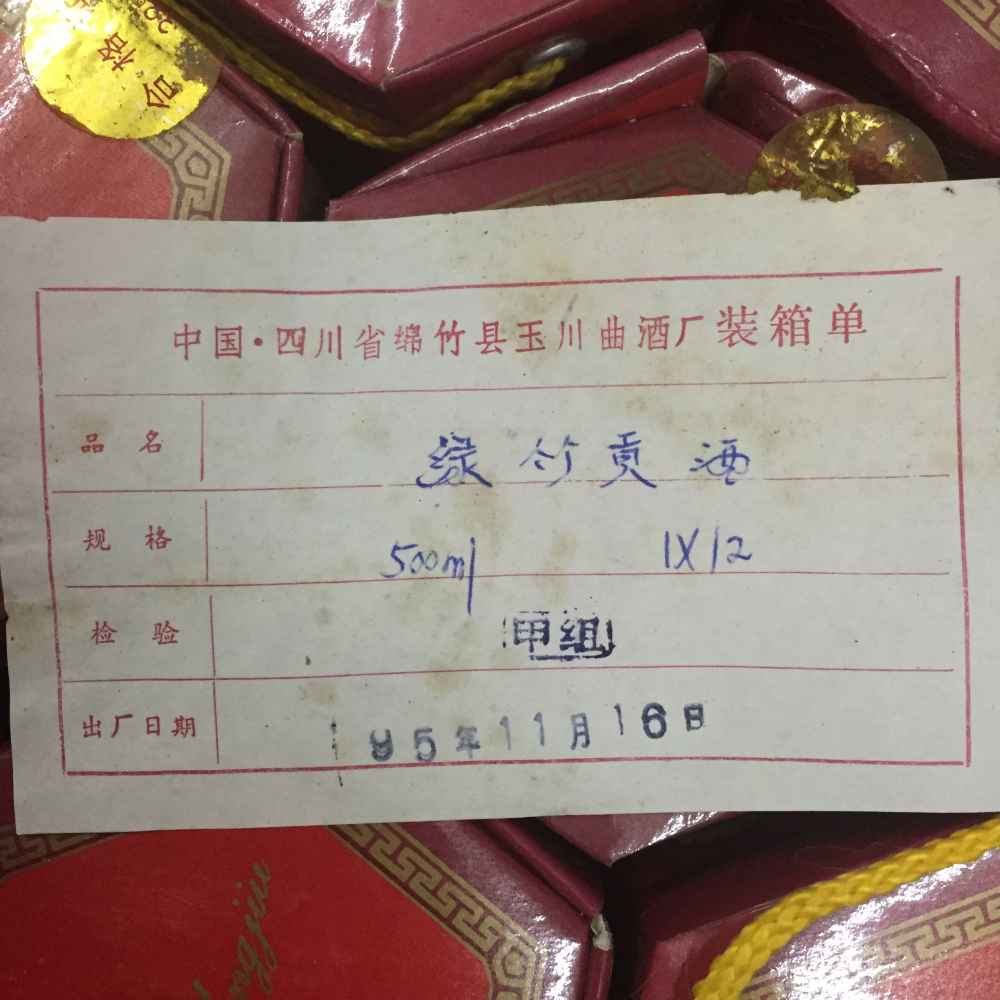 合格
中国·四川省绵竹县玉川曲酒厂装箱单
品名 绿竹贡酒
规格 500ml 1X12
检验 甲组
出厂日期 95年11月16日